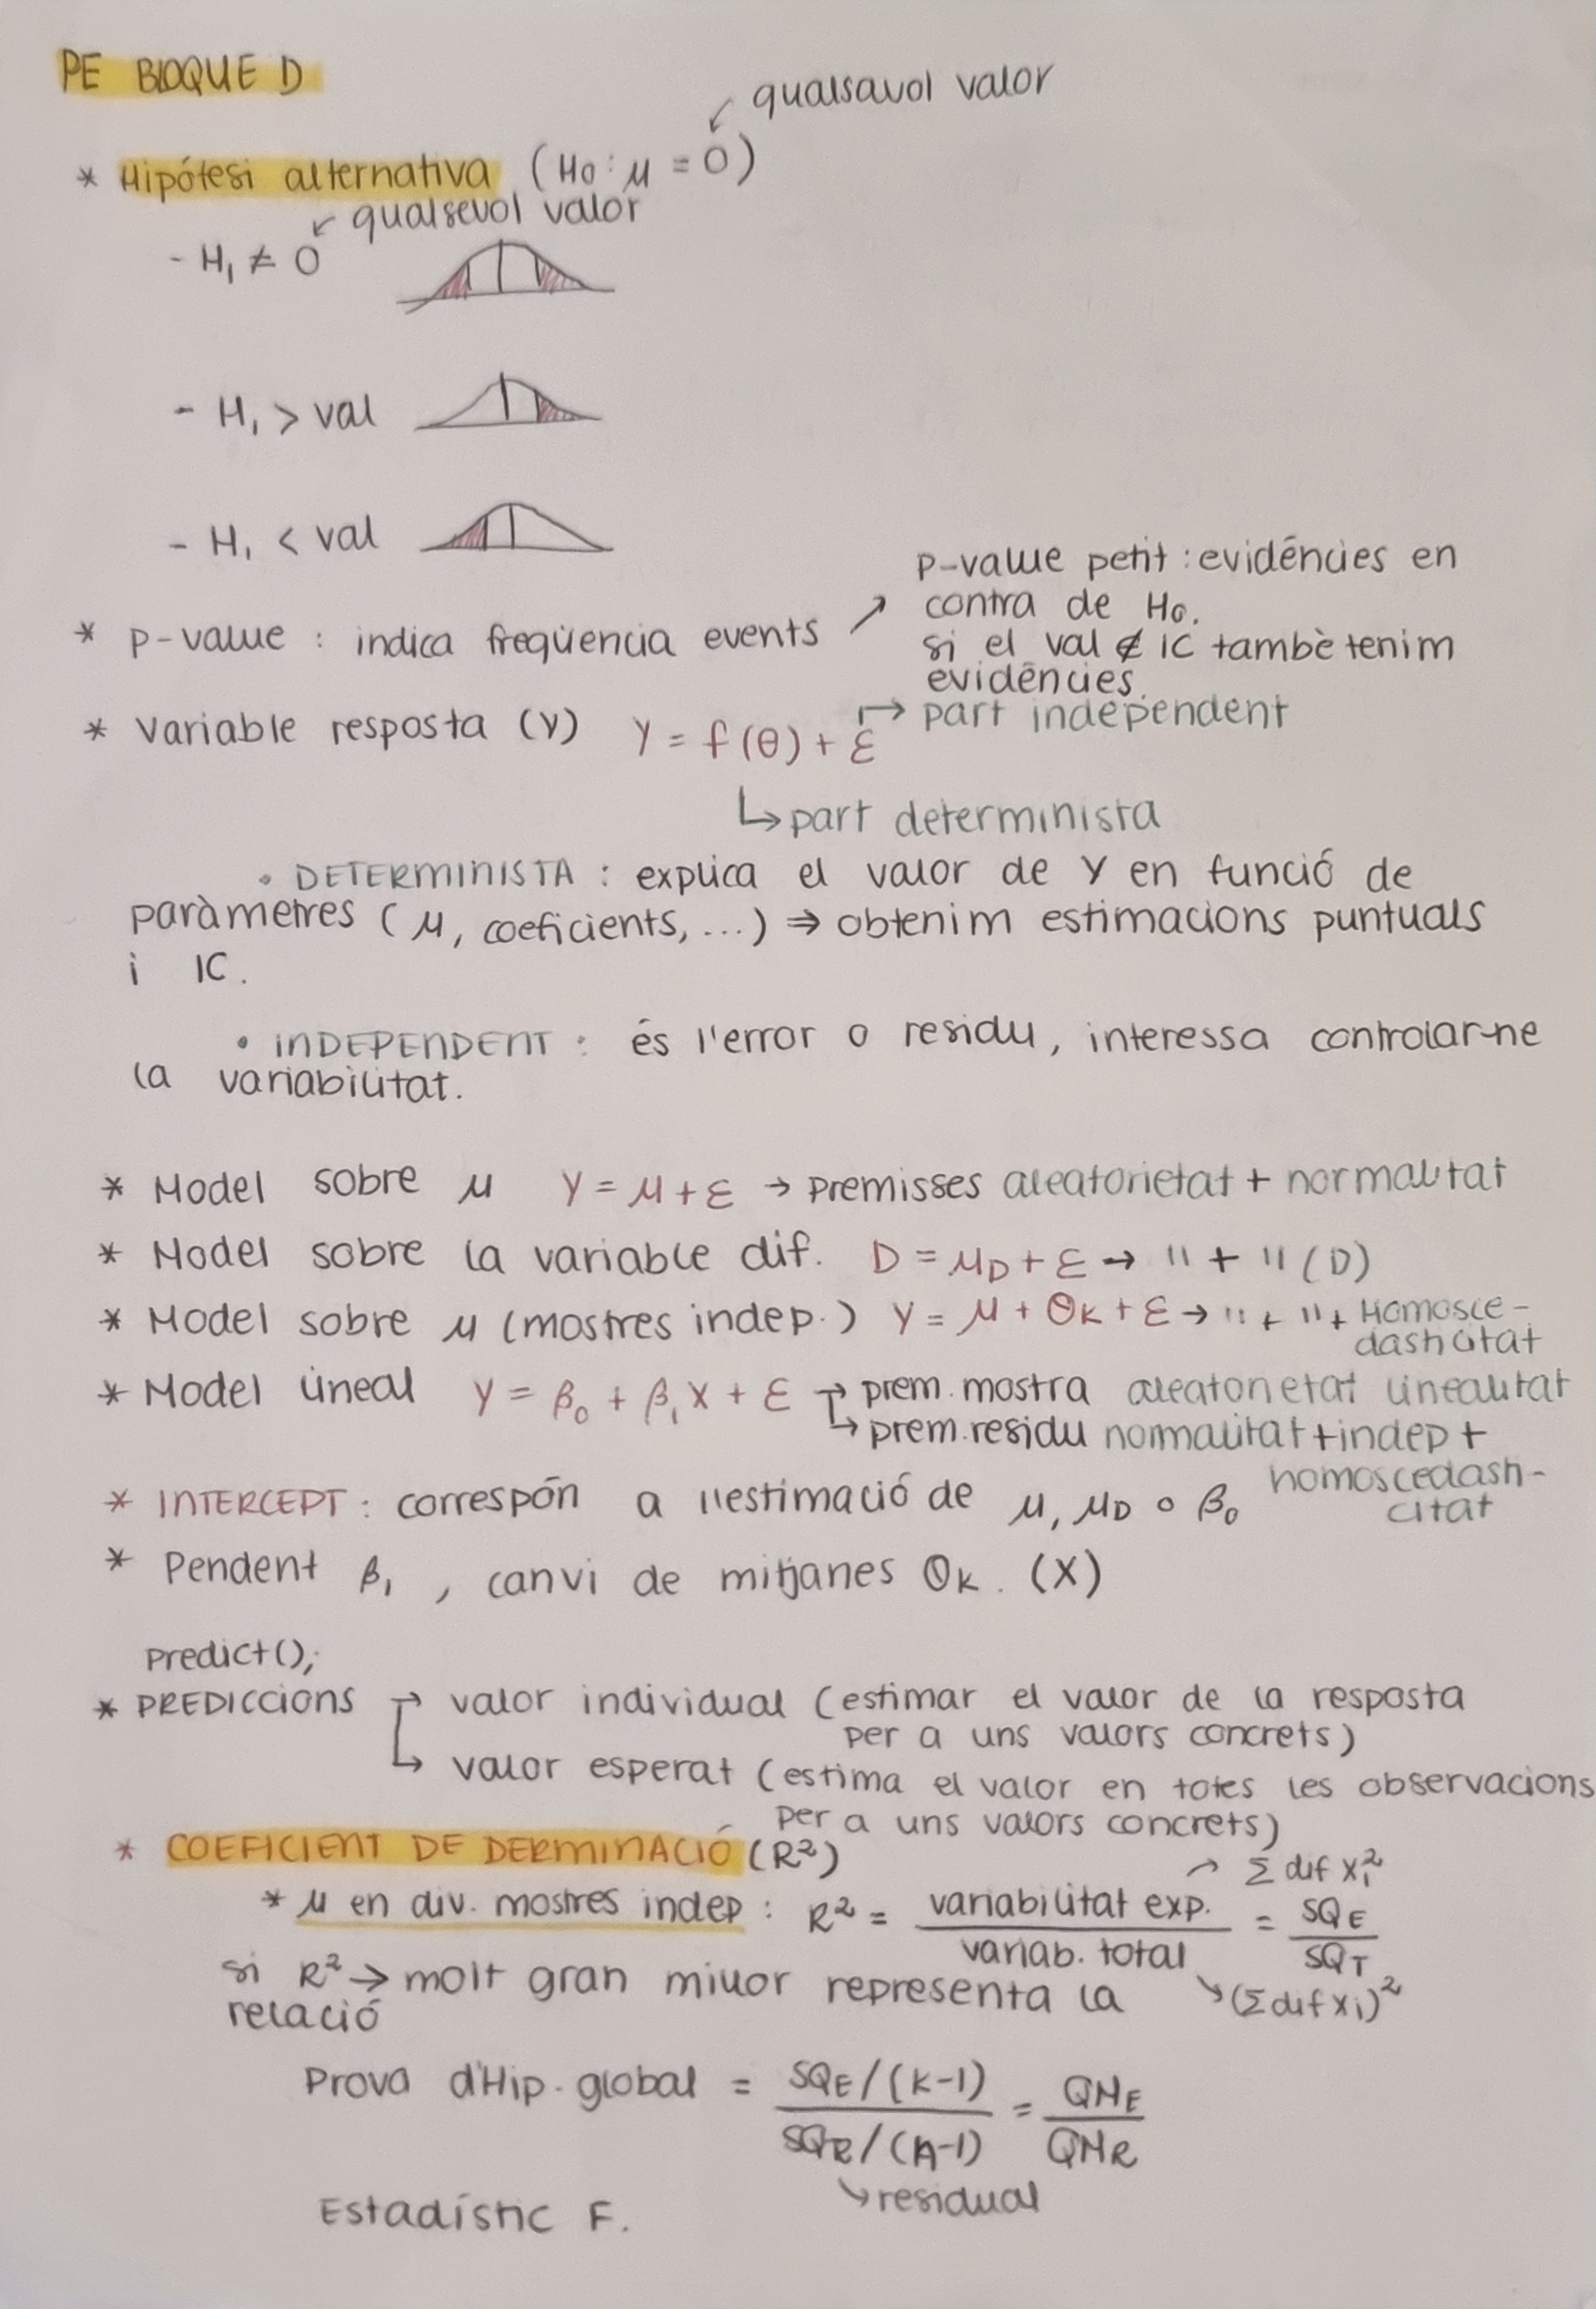 PE BLOQUE D
qualsavol valor
* Hipótesi alternativa (H0: μ = 0)
qualsevol valor
- H₁ ≠ 0
- H₁ > val
- H₁ < val
p-value petit: evidéncies en
contra de H0.
* p-value : indica freqüencia events
si el val ∉ IC també tenim
evidéncies.
* Variable resposta (Y) Y = f(θ) + ε
part independent
part determinista
• DETERMINISTA : explica el valor de Y en funció de
paràmetres (μ, coeficients, ...) ⇒ obtenim estimacions puntuals
i IC.
• INDEPENDENT : és l'error o residu, interessa controlar-ne
la variabilitat.
* Model sobre μ Y = μ + ε → premisses aleatorietat + normalitat
* Model sobre la variable dif. D = μD + ε → " + " (D)
* Model sobre μ (mostres indep.) Y = μ + θK + ε → " + " + Homosce-
dasticitat
* Model lineal Y = β₀ + β₁X + ε → prem. mostra aleatorietat linealitat
↳ prem. residu normalitat + indep +
homoscedasti-
citat
* INTERCEPT : correspón a l'estimació de μ, μD o β₀
* Pendent β₁ , canvi de mitjanes θK. (X)
Predict();
* PREDICCIONS → valor individual (estimar el valor de la resposta
per a uns valors concrets)
↳ valor esperat (estima el valor en totes les observacions
per a uns valors concrets)
* COEFICIENT DE DERMINACIÓ (R²)
Σ dif Xi²
* μ en div. mostres indep : R² = variabilitat exp. / variab. total = SQE / SQT
(Σ dif Xi)²
si R² → molt gran millor representa la
relació
Prova d'Hip. global = SQE/(K-1) / SQR/(n-1) = QME / QMR
residual
Estadístic F.